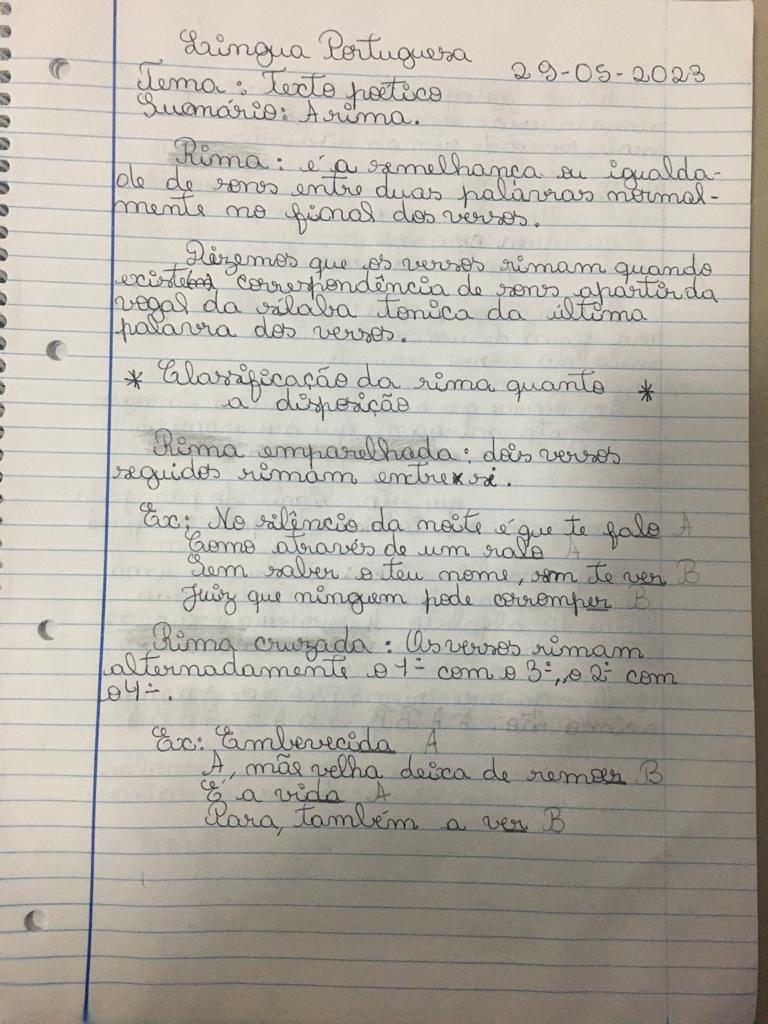 Língua Portuguesa
29-05-2023
Tema: Texto poético
Sumário: A rima.
Rima: é a semelhança ou igualda-
de de sons entre duas palávras normal-
mente no final dos versos.
Dizemos que os versos rimam quando
existe(m) correspondência de sons apartir da
vogal da sílaba tonica da última
palavra dos versos.
* Classificação da rima quanto *
a disposição
Rima emparelhada: dois versos
seguidos rimam entre si.
Ex: No silêncio da noite é que te falo A
Como através de um ralo A
Sem saber o teu nome, sem te ver B
Juiz que ninguem pode corromper B
Rima cruzada: Os versos rimam
alternadamente o 1º com o 3º, o 2º com
o 4º.
Ex: Embevecida A
A, mãe velha deixa de remoer B
E a vida A
Para, também a ver B